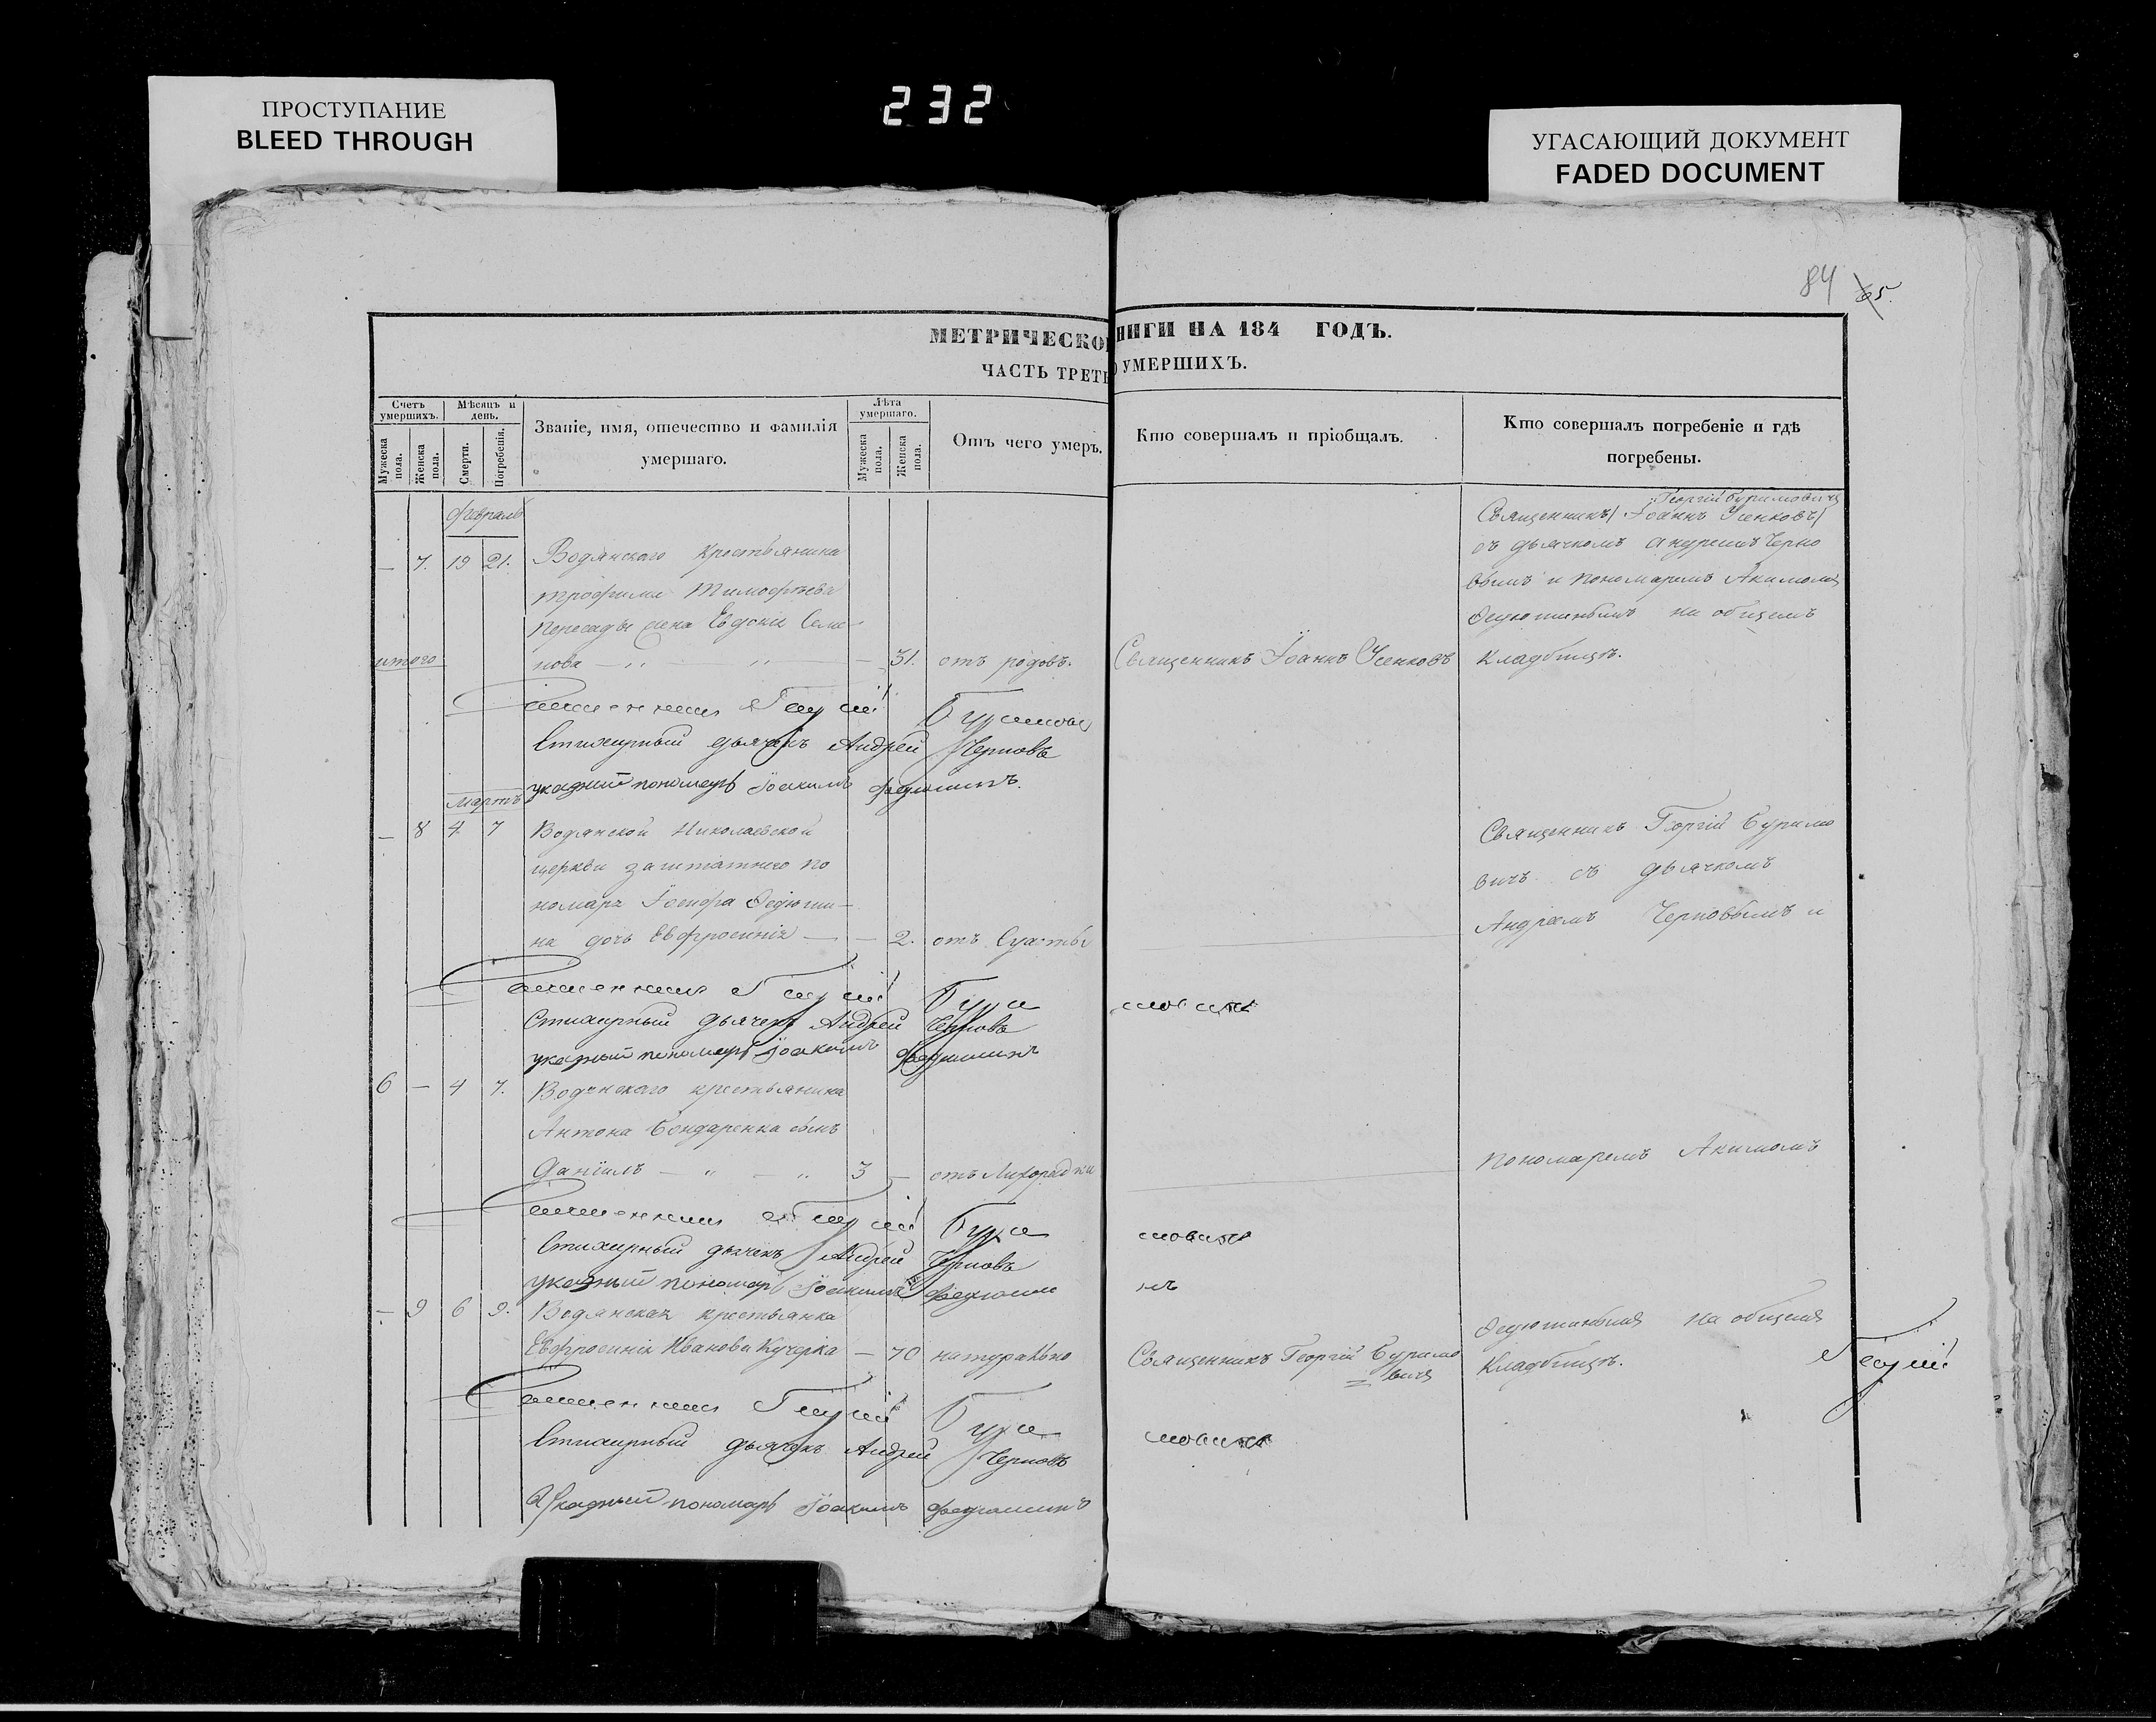 232
ПРОСТУПАНИЕ
BLEED THROUGH
УГАСАЮЩИЙ ДОКУМЕНТ
FADED DOCUMENT
84 65.
МЕТРИЧЕСКО НИГИ НА 184 ГОДЪ.
ЧАСТЬ ТРЕТЬ УМЕРШИХЪ.
Счетъ умершихъ.
Мужеска пола.
Женска пола.
Мѣсяцъ и день.
Смерти.
Погребенія.
Званіе, имя, отечество и фамилія умершаго.
Лѣта умершаго.
Мужеска пола.
Женска пола.
Отъ чего умеръ.
Кто совершалъ и пріобщалъ.
Кто совершалъ погребеніе и гдѣ погребены.
Февраль
— 7. 19 21. Водянского крестьянина
Трофима Тимофѣева
жена Евдокія Семе-
итого нова — „ — „ — 31. отъ родовъ. Священникъ Іоаннъ Усенковъ
Георгій Буримовичъ
Священникъ/ Іоаннъ Усенковъ/
съ дьячкомъ Андреемъ Черно
вымъ и пономаремъ Акимомъ
Федюшинымъ на общемъ
Кладбищѣ.
Священникъ Георгій Буримовичъ
Стихирный дьячекъ Андрей Черновъ
указный пономарь Іоакимъ Федюшинъ.
Мартъ
— 8 4 7 Водянской Николаевской
церкви заштатного по
номаря Іосифа Федюши-
на дочь Евфросинія — — 2. отъ Сухоты
Священникъ Георгій Буримо
вичъ съ дьячкомъ
Андреемъ Черновымъ и
Священникъ Георгій Буримовичъ
Стихирный дьячекъ Андрей Черновъ
указный пономарь Іоакимъ Федюшинъ
6 — 4 7. Водянского крестьянина
Антона Бондаренка сынъ
Даніилъ — „ — „ 3 — отъ Лихорадки
пономаремъ Акимомъ
Священникъ Георгій Буримовичъ
Стихирный дьячекъ Андрей Черновъ
указный пономарь Іоакимъ Федюшинъ
— 9 6 9. Водянская крестьянка
Евфросинія Иванова Кучерка — 70 натурально Священникъ Георгій Буримо
вичъ
Федюшинымъ на общемъ
Кладбищѣ.
Георгій
Священникъ Георгій Буримовичъ
Стихирный дьячекъ Андрей Черновъ
Указный пономарь Іоакимъ Федюшинъ